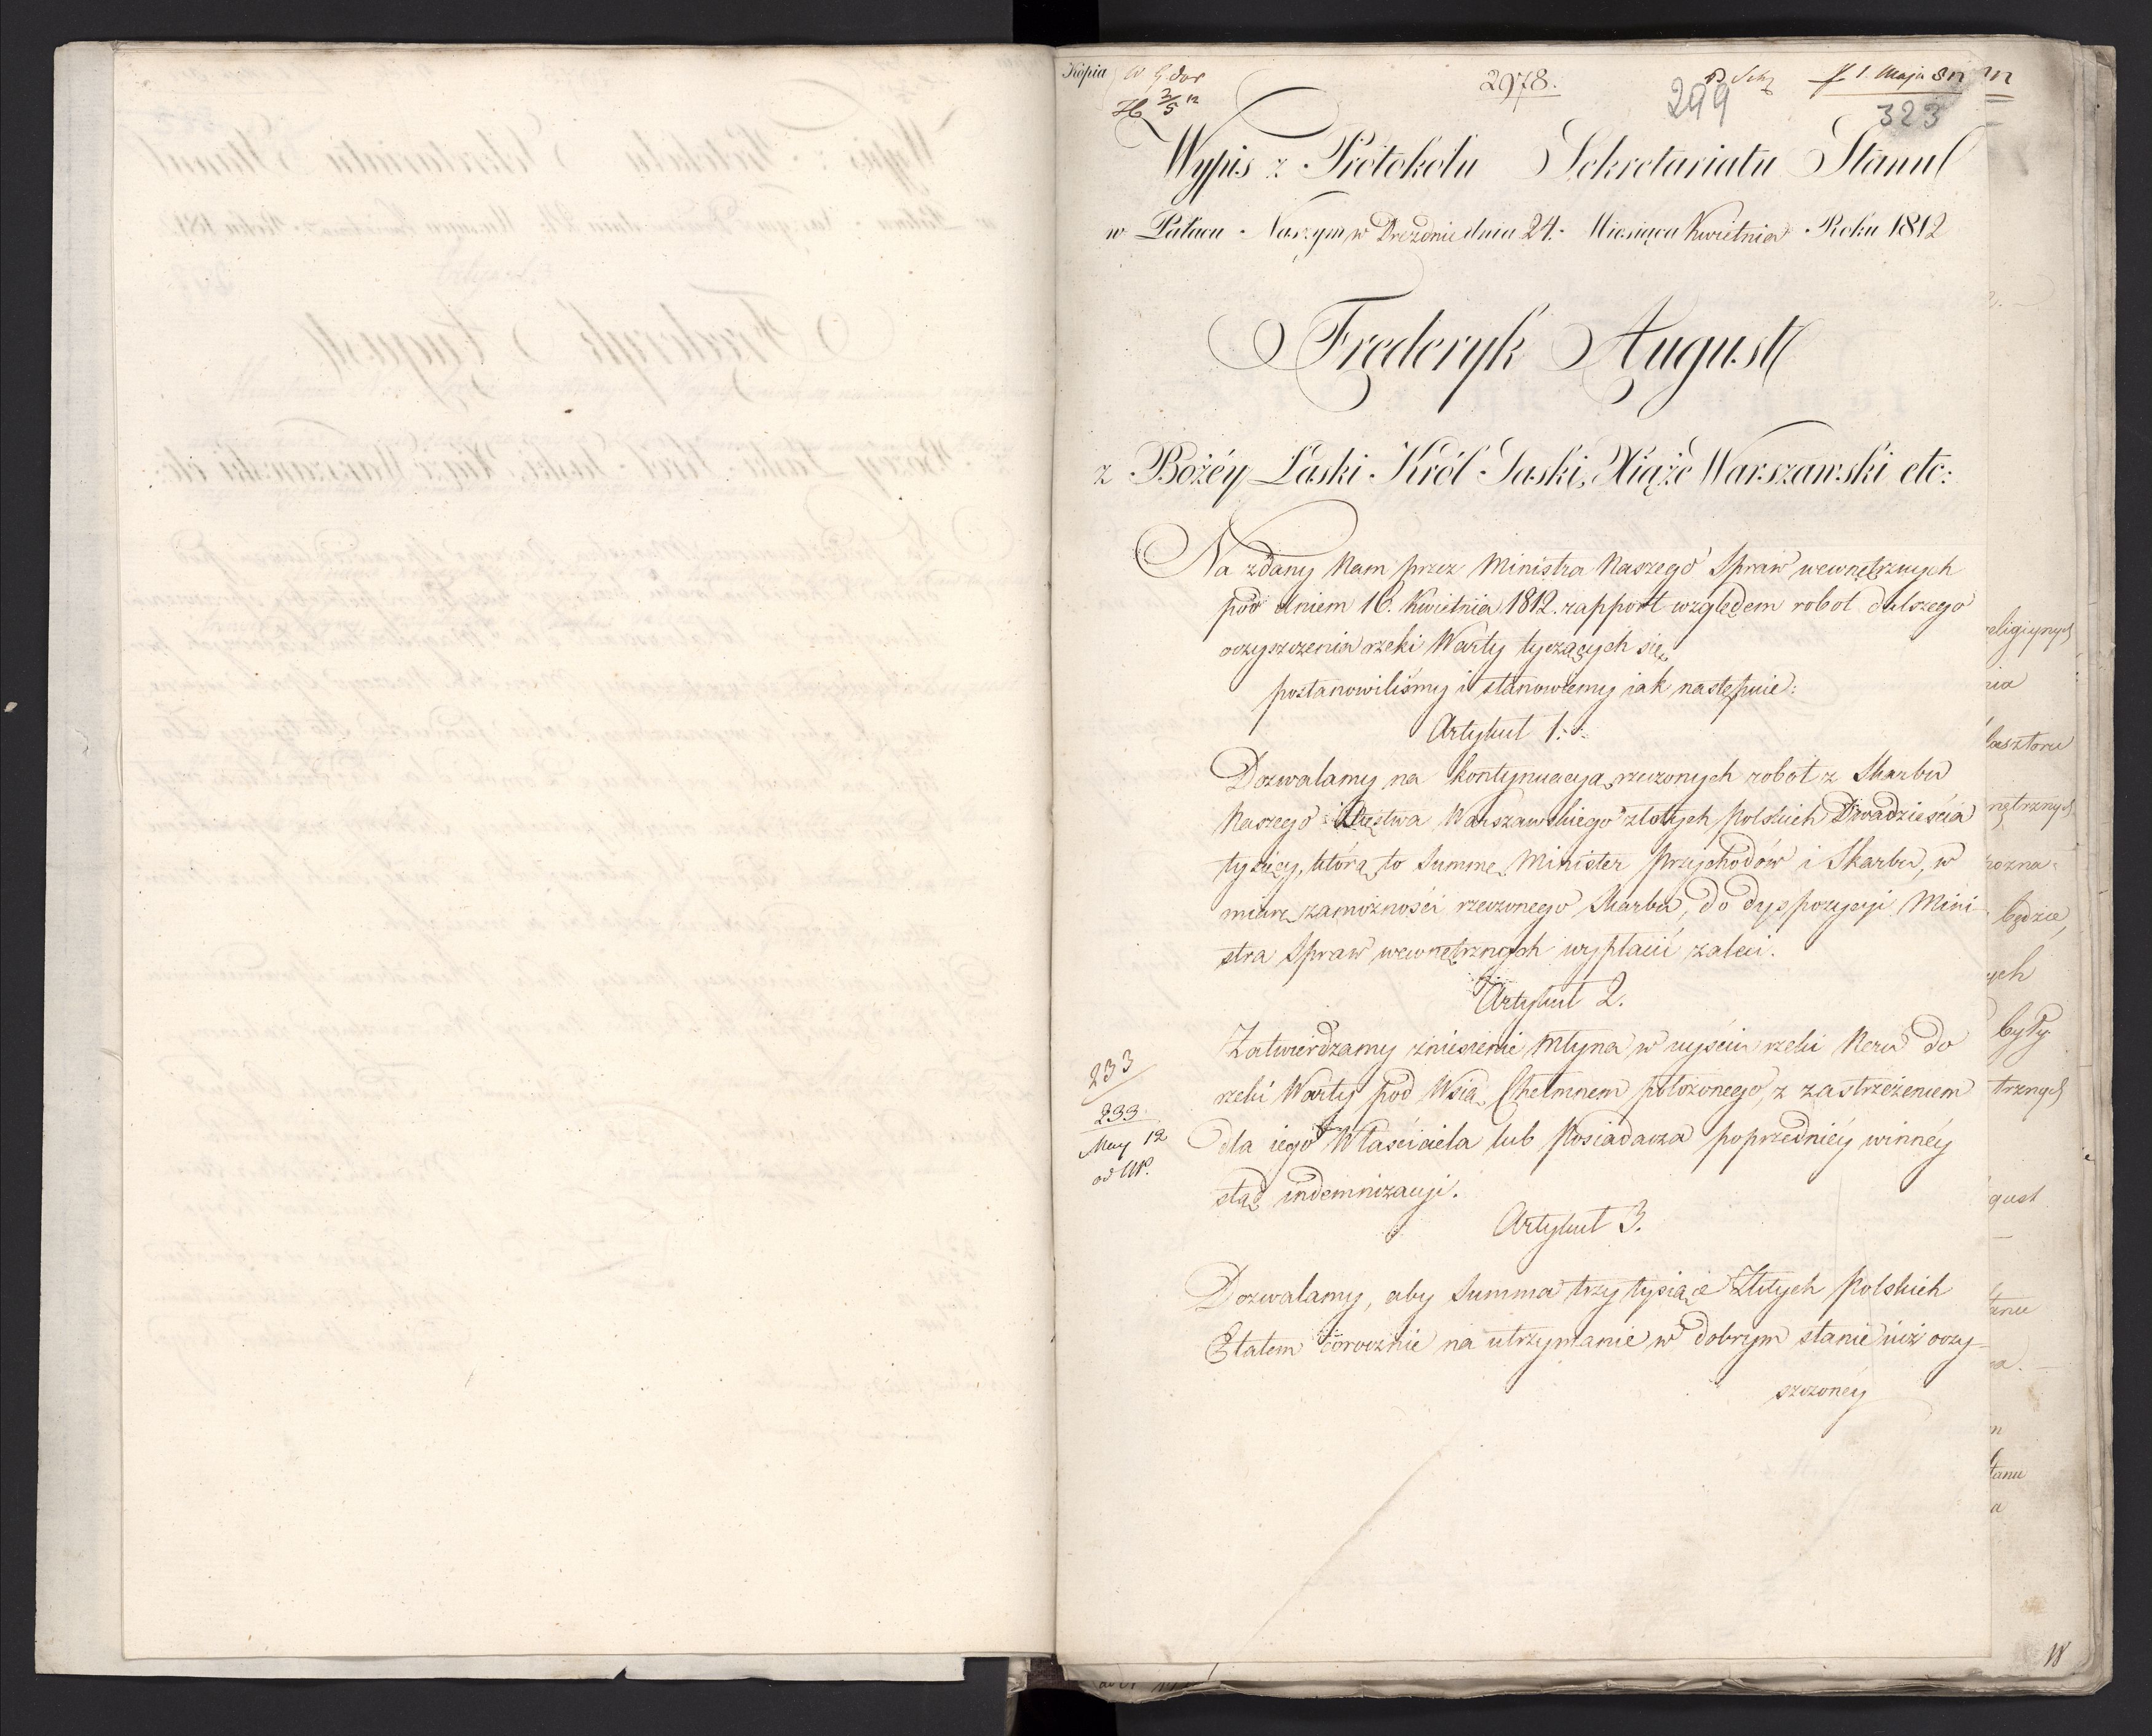 Kopia
2978.
299
1. Maja 812
323
Wypis z Protokołu Sekretariatu Stanu
w Pałacu Naszym w Dreznie dnia 24. Miesiąca Kwietnia Roku 1812
Frederyk August
z Bożéy Łaski Król Saski, Xiążę Warszawski etc:
Na zdany Nam przez Ministra Naszego Spraw wewnętrznych
pod dniem 16. Kwietnia 1812. rapport względem robot dalszego
oczyszczenia rzeki Warty tyczących się,
postanowiliśmy i stanowiemy iak następuie:
Artykuł 1.
Dozwalamy na kontynuacyą rzeczonych robot z Skarbu
Naszego Xięstwa Warszawskiego złotych Polskich Dwadzieścia
tysięcy, którą to Summę Minister Przychodów i Skarbu, w
miarę zamożności rzeczonego Skarbu, do dyspozycyi Mini
stra Spraw wewnętrznych wypłacić zaleci.
Artykuł 2.
Zatwierdzamy zniesienie Młyna w uyściu rzeki Neru do
rzeki Warty pod Wsią Chełmnem położonego, z zastrzeżeniem
dla iego Właściciela lub Posiadacza poprzedniéy winnéy
stąd indemnizacyi.
233
233
May 12
Artykuł 3.
Dozwalamy, aby Summa trzy tysiące Złotych Polskich
Etatem corocznie na utrzymanie w dobrym stanie iuż oczy-
szczoney
eligiynych
nia
lasztoru
nętrznych
pozna=
będzie,
ych
były
trznych
gust
tanu
a.
m
tanu
a